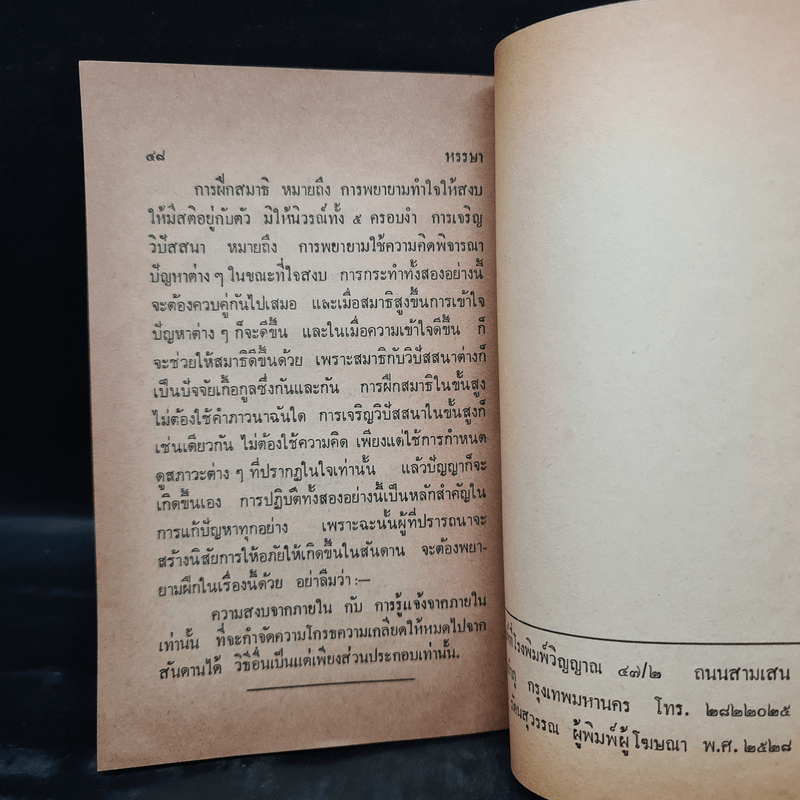 ๔๘ หรรษา
การฝึกสมาธิ หมายถึง การพยายามทำใจให้สงบ
ให้มีสติอยู่กับตัว มิให้นิวรณ์ทั้ง ๕ ครอบงำ การเจริญ
วิปัสสนา หมายถึง การพยายามใช้ความคิดพิจารณา
ปัญหาต่าง ๆ ในขณะที่ใจสงบ การกระทำทั้งสองอย่างนี้
จะต้องควบคู่กันไปเสมอ และเมื่อสมาธิสูงขึ้นการเข้าใจ
ปัญหาต่าง ๆ ก็จะดีขึ้น และในเมื่อความเข้าใจดีขึ้น ก็
จะช่วยให้สมาธิดีขึ้นด้วย เพราะสมาธิกับวิปัสสนาต่างก็
เป็นปัจจัยเกื้อกูลซึ่งกันและกัน การฝึกสมาธิในขั้นสูง
ไม่ต้องใช้คำภาวนาฉันใด การเจริญวิปัสสนาในขั้นสูงก็
เช่นเดียวกัน ไม่ต้องใช้ความคิด เพียงแต่ใช้การกำหนด
ดูสภาวะต่าง ๆ ที่ปรากฏในใจเท่านั้น แล้วปัญญาก็จะ
เกิดขึ้นเอง การปฏิบัติทั้งสองอย่างนี้เป็นหลักสำคัญใน
การแก้ปัญหาทุกอย่าง เพราะฉะนั้นผู้ที่ปรารถนาจะ
สร้างนิสัยการให้อภัยให้เกิดขึ้นในสันดาน จะต้องพยา-
ยามฝึกในเรื่องนี้ด้วย อย่าลืมว่า :—
ความสงบจากภายใน กับ การรู้แจ้งจากภายใน
เท่านั้น ที่จะกำจัดความโกรธความเกลียดให้หมดไปจาก
สันดานได้ วิธีอื่นเป็นแต่เพียงส่วนประกอบเท่านั้น.
โรงพิมพ์วิญญาณ ๔๗/๒ ถนนสามเสน
กรุงเทพมหานคร โทร. ๒๘๒๒๐๒๕
ผู้พิมพ์ผู้โฆษณา พ.ศ. ๒๕๒๘